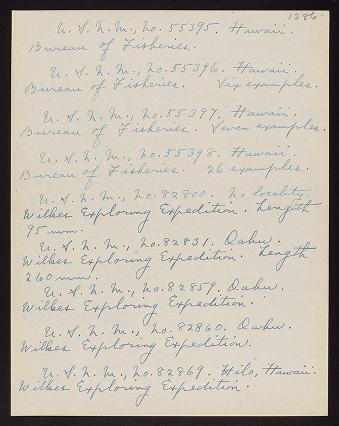 1386.
U. S. N. M., No. 55395. Hawaii.
Bureau of Fisheries.
U. S. N. M., No. 55396. Hawaii.
Bureau of Fisheries. Six examples.
U. S. N. M., No. 55397. Hawaii.
Bureau of Fisheries. Seven examples.
U. S. N. M., No. 55398. Hawaii.
Bureau of Fisheries. 26 examples.
U. S. N. M., No. 82800. No locality.
Wilkes Exploring Expedition. Length
95 mm.
U. S. N. M., No. 82831. Oahu.
Wilkes Exploring Expedition. Length
260 mm.
U. S. N. M., No. 82859. Oahu.
Wilkes Exploring Expedition.
U. S. N. M., No. 82860. Oahu.
Wilkes Exploring Expedition.
U. S. N. M., No. 82869. Hilo, Hawaii.
Wilkes Exploring Expedition.